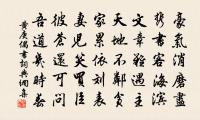 豪氣消磨盡
攜書客海濱
文章難遇主
天地不鄰貧
家累依劉表
妻兒笑買臣
彼蒼還可問
吾道幾時春
黃庚偶書 詞典網集